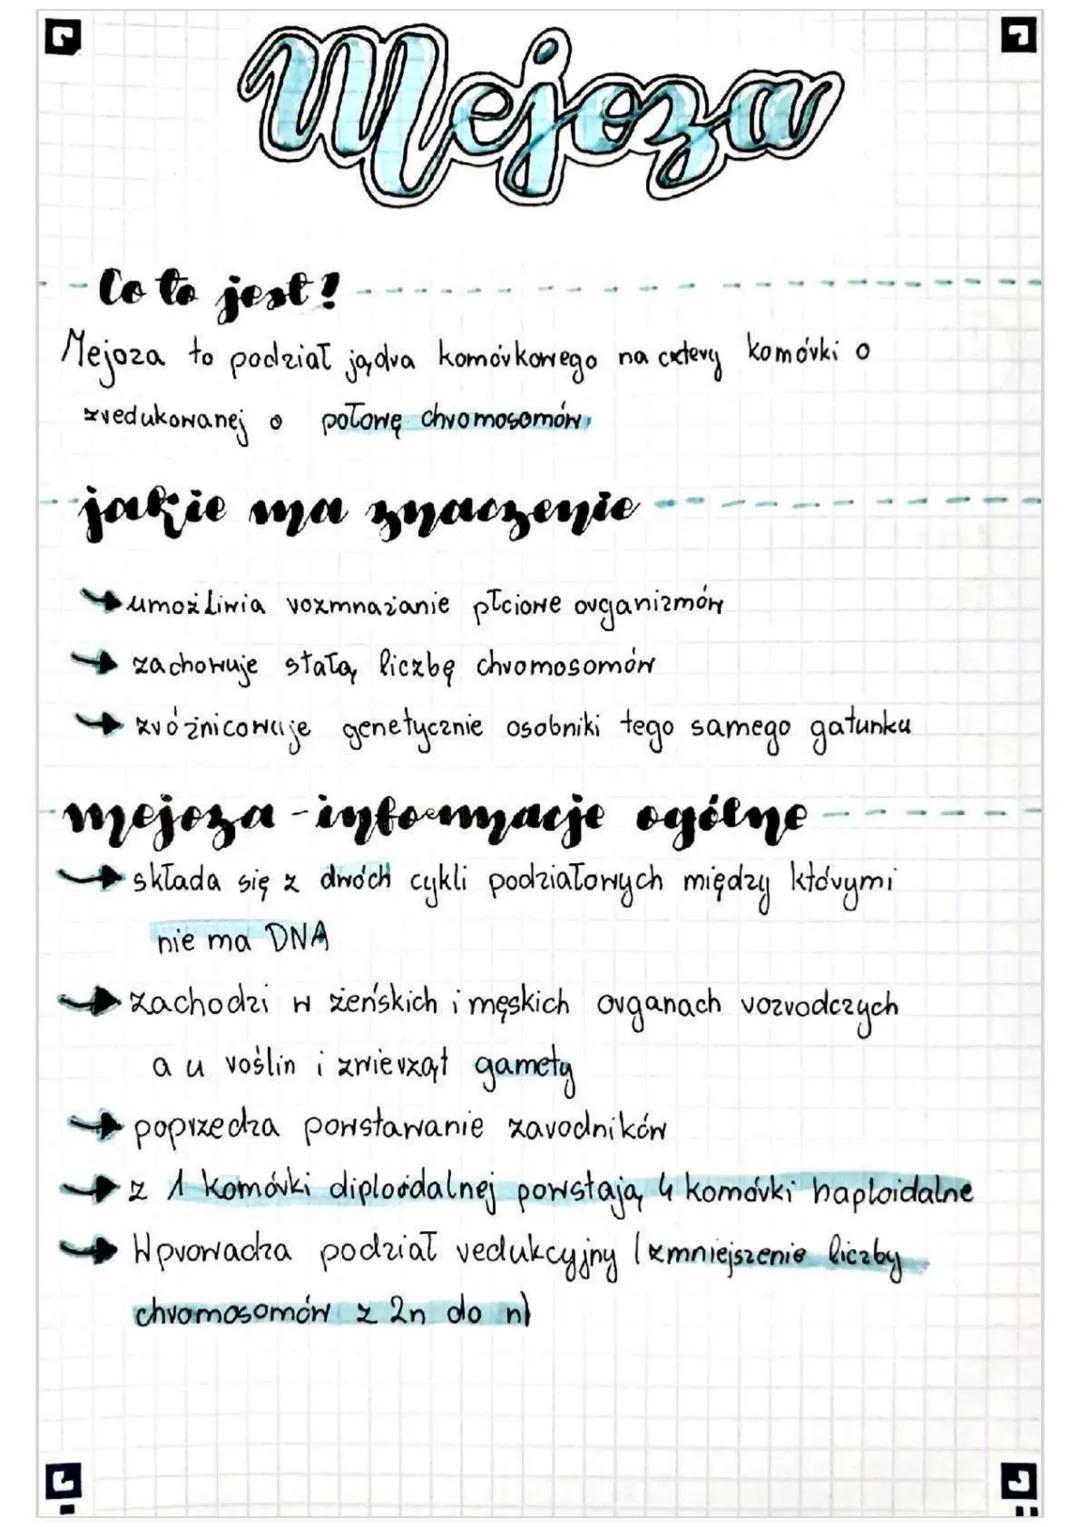 Mejoza
Co to jest?
Mejoza to podział jądra komórkowego na cztery komórki o
zredukowanej o połowę chromosomów
jakie ma znaczenie
umożliwia rozmnażanie płciowe organizmów
zachowuje stałą liczbę chromosomów
zróżnicowuje genetycznie osobniki tego samego gatunku
mejoza - informacje ogólne
składa się z dwóch cykli podziałowych między którymi
nie ma DNA
zachodzi w żeńskich i męskich organach rozrodczych
a u roślin i zwierząt gamety
poprzedza powstawanie zarodników
z 1 komórki diploidalnej powstają 4 komórki haploidalne
Wprowadza podział redukcyjny (zmniejszenie liczby
chromosomów z 2n do n)